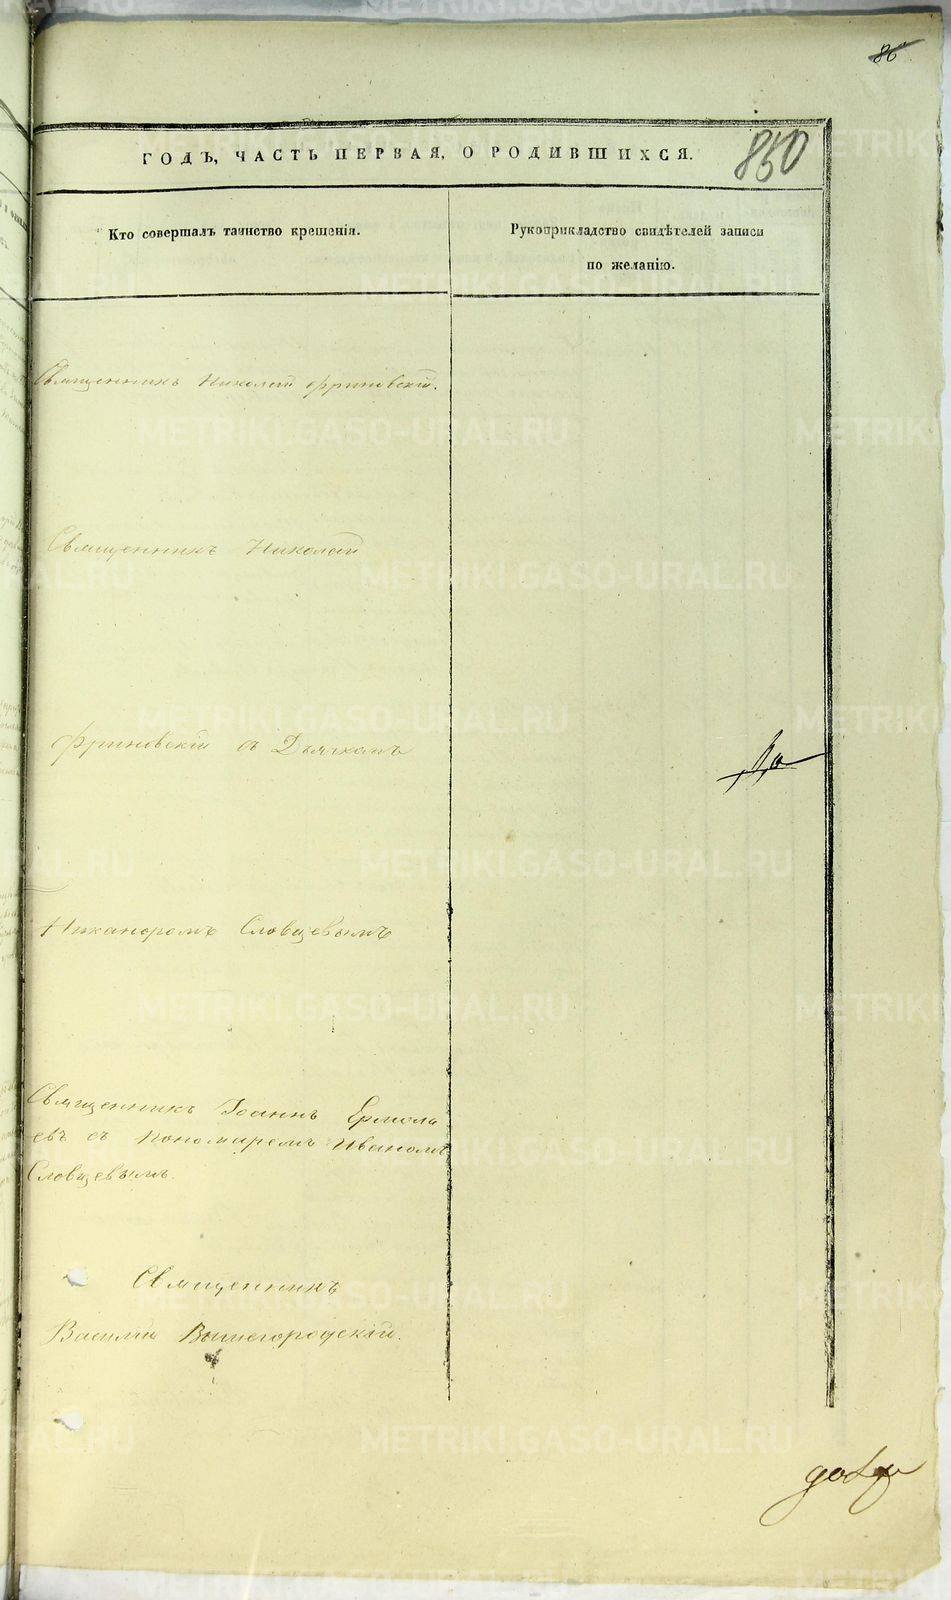 86
ГОДЪ, ЧАСТЬ ПЕРВАЯ, О РОДИВШИХСЯ.
850
Кто совершалъ таинство крещенія.
Рукоприкладство свидѣтелей записи
по желанію.
Священникъ Николай Фриновскій.
Священникъ Николай
Фриновскій съ Дьячкомъ
Никаноромъ Словцевымъ
Священникъ Іоаннъ Ермола
евъ съ Пономаремъ Иваномъ
Словцевымъ.
Священникъ
Василій Вышегородскій.
METRIKI.GASO-URAL.RU